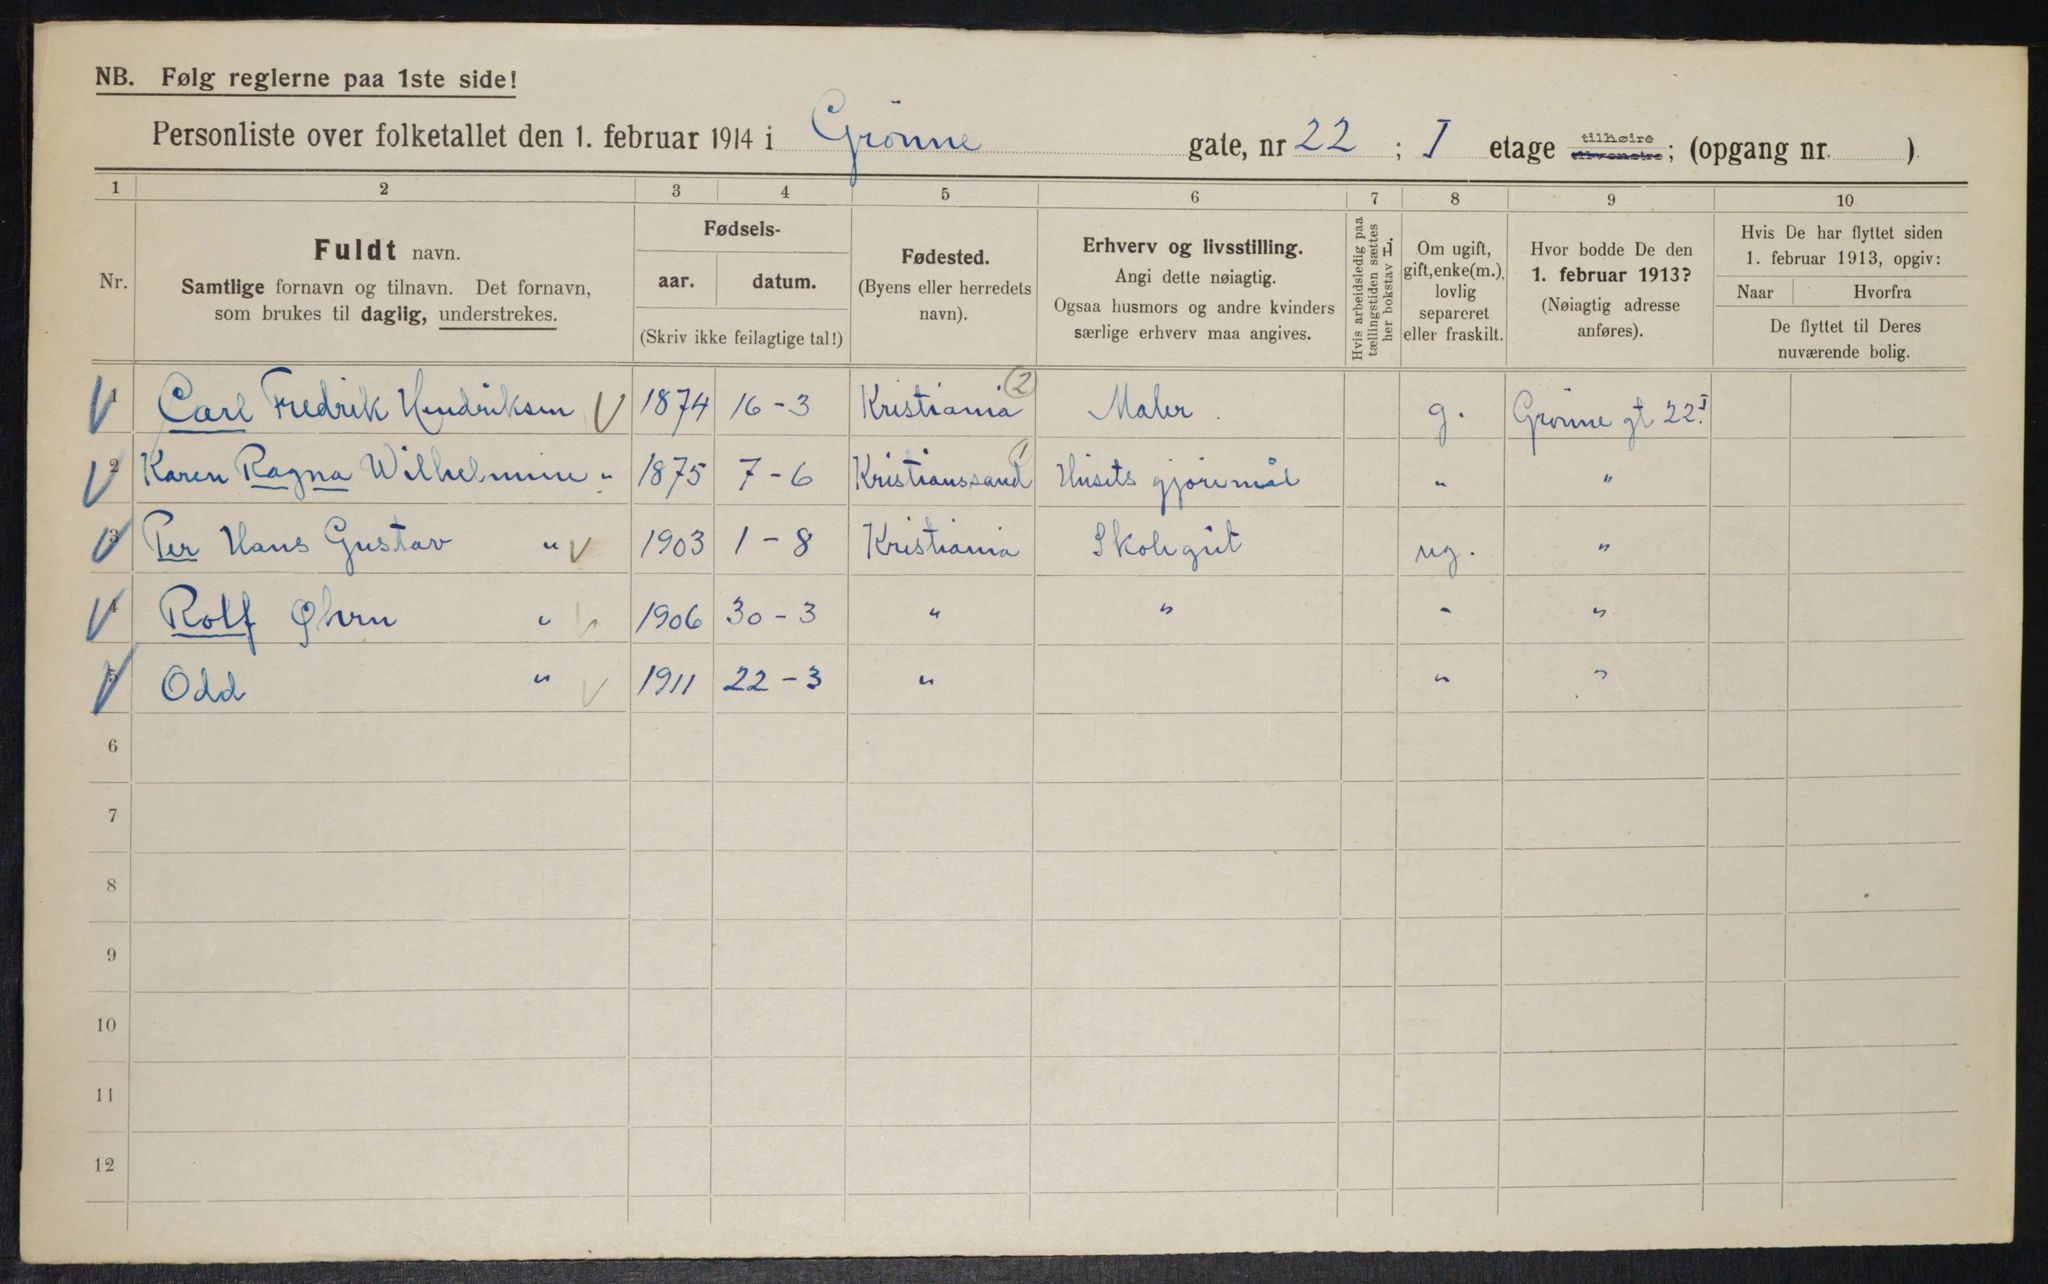 NB. Følg reglerne paa 1ste side!
Personliste over folketallet den 1. februar 1914 i Grönne gate, nr 22 ; I etage tilhøire tilvenstre; (opgang nr. )
1 2 3 4 5 6 7 8 9 10
Nr.
Fuldt navn.
Samtlige fornavn og tilnavn. Det fornavn,
som brukes til daglig, understrekes.
Fødsels-
aar. datum.
(Skriv ikke feilagtige tal!)
Fødested.
(Byens eller herredets
navn).
Erhverv og livsstilling.
Angi dette nøiagtig.
Ogsaa husmors og andre kvinders
særlige erhverv maa angives.
Hvis arbeidsledig paa
tællingstiden sættes
her bokstav L.
Om ugift,
gift, enke(m.),
lovlig
separeret
eller fraskilt.
Hvor bodde De den
1. februar 1913?
(Nøiagtig adresse
anføres).
Hvis De har flyttet siden
1. februar 1913, opgiv:
Naar Hvorfra
De flyttet til Deres
nuværende bolig.
1 Carl Fredrik Hendriksen V 1874 16-3 Kristiania (2) Maler. g. Grönne gt 22 I
2 Karen Ragna Wilhelmine " 1875 7-6 Kristianssand 1 Husets gjöremål " "
3 Per Hans Gustav " V 1903 1-8 Kristiania Skolegut ug. "
4 Rolf Øhrn " V 1906 30-3 " " " "
5 Odd " V 1911 22-3 " " "
6
7
8
9
10
11
12